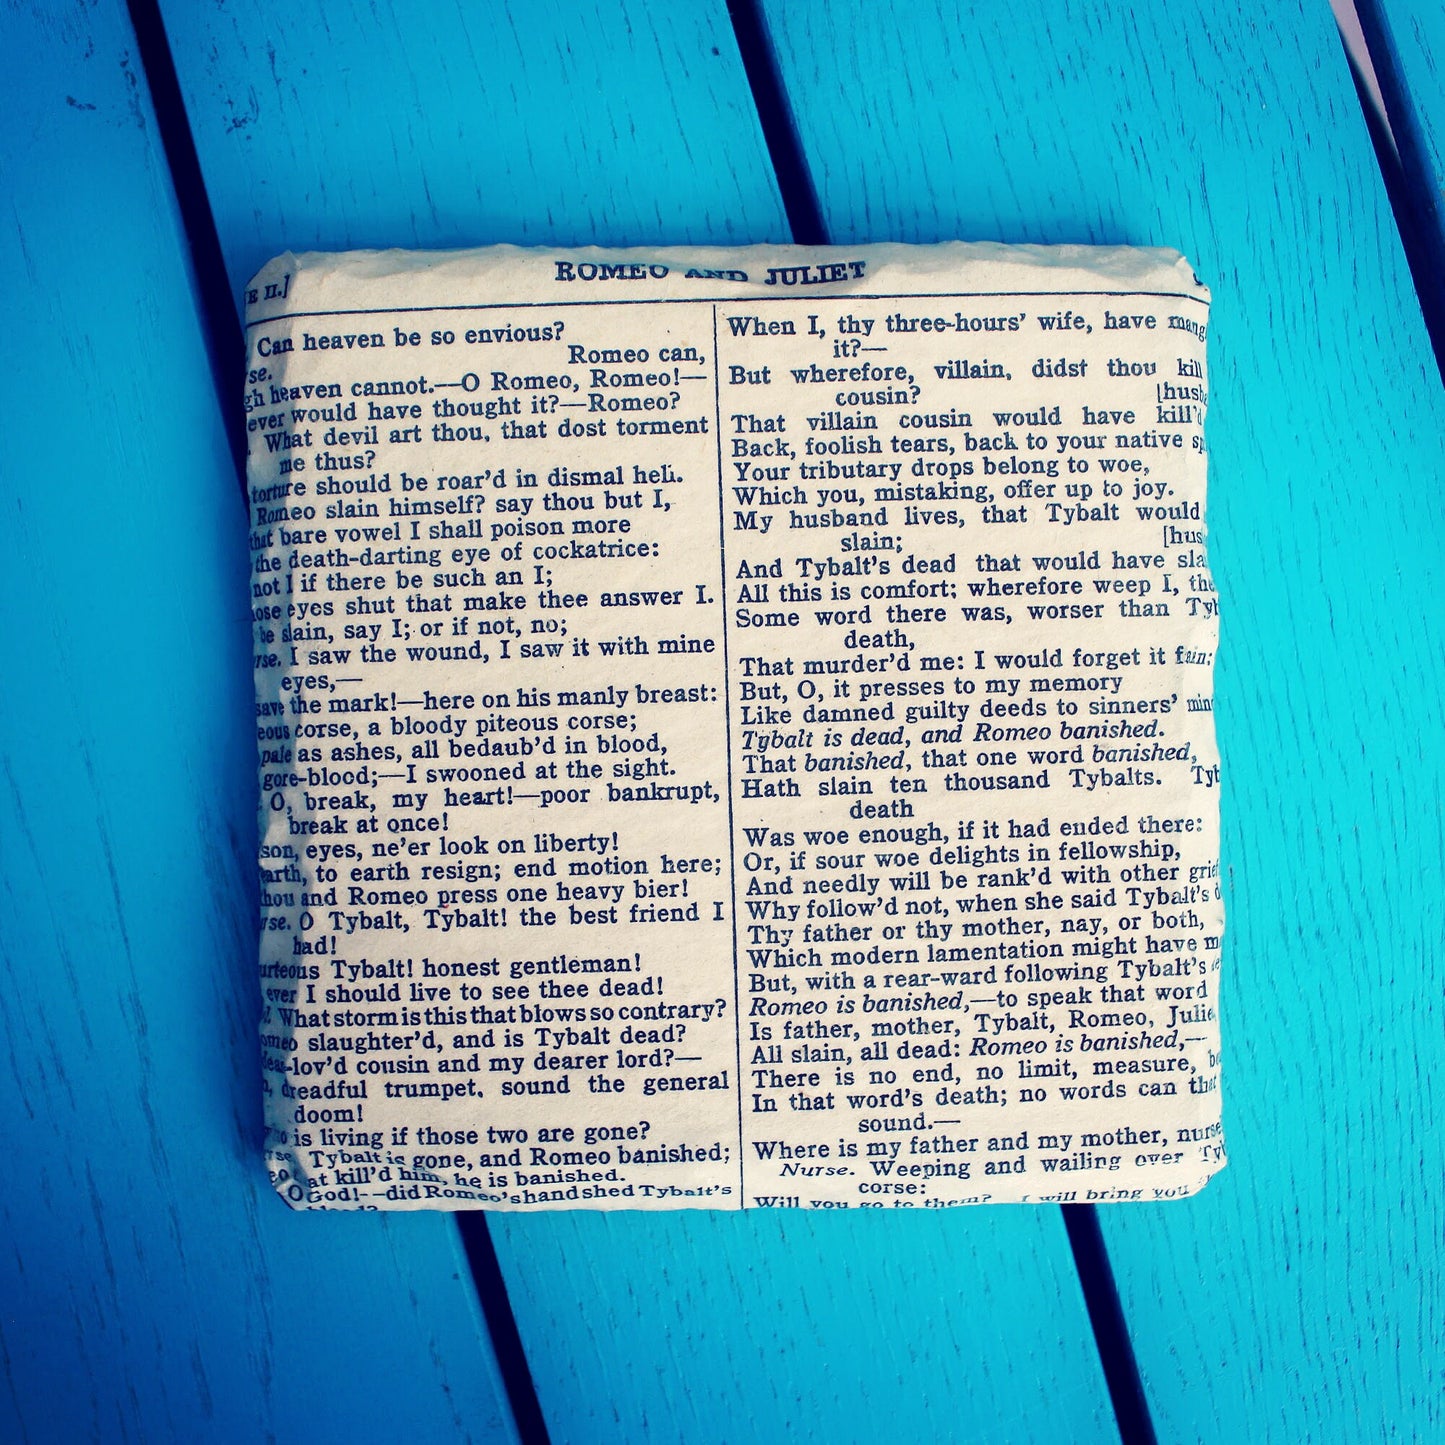 II.]
ROMEO AND JULIET
Can heaven be so envious?
Romeo can,
heaven cannot.—O Romeo, Romeo!—
ever would have thought it?—Romeo?
What devil art thou, that dost torment
me thus?
torture should be roar'd in dismal hell.
Romeo slain himself? say thou but I,
that bare vowel I shall poison more
the death-darting eye of cockatrice:
not I if there be such an I;
eyes shut that make thee answer I.
be slain, say I; or if not, no;
I saw the wound, I saw it with mine
eyes,—
save the mark!—here on his manly breast:
corse, a bloody piteous corse;
pale as ashes, all bedaub'd in blood,
gore-blood;—I swooned at the sight.
O, break, my heart!—poor bankrupt,
break at once!
eyes, ne'er look on liberty!
to earth resign; end motion here;
and Romeo press one heavy bier!
O Tybalt, Tybalt! the best friend I
had!
Tybalt! honest gentleman!
ever I should live to see thee dead!
What storm is this that blows so contrary?
slaughter'd, and is Tybalt dead?
-lov'd cousin and my dearer lord?—
dreadful trumpet, sound the general
doom!
is living if those two are gone?
Tybalt is gone, and Romeo banished;
kill'd him, he is banished.
O God!—did Romeo's hand shed Tybalt's
When I, thy three-hours' wife, have
it?—
But wherefore, villain, didst thou kill
cousin?
That villain cousin would have kill'd
Back, foolish tears, back to your native
Your tributary drops belong to woe,
Which you, mistaking, offer up to joy.
My husband lives, that Tybalt would
slain;
And Tybalt's dead that would have
All this is comfort; wherefore weep I,
Some word there was, worser than
death,
That murder'd me: I would forget it fain;
But, O, it presses to my memory
Like damned guilty deeds to sinners'
Tybalt is dead, and Romeo banished.
That banished, that one word banished,
Hath slain ten thousand Tybalts.
death
Was woe enough, if it had ended there:
Or, if sour woe delights in fellowship,
And needly will be rank'd with other
Why follow'd not, when she said Tybalt's
Thy father or thy mother, nay, or both,
Which modern lamentation might have
But, with a rear-ward following Tybalt's
Romeo is banished,—to speak that word
Is father, mother, Tybalt, Romeo,
All slain, all dead: Romeo is banished,—
There is no end, no limit, measure,
In that word's death; no words can
sound.—
Where is my father and my mother, nurse
Nurse. Weeping and wailing over
corse:
Will you go to them? I will bring you